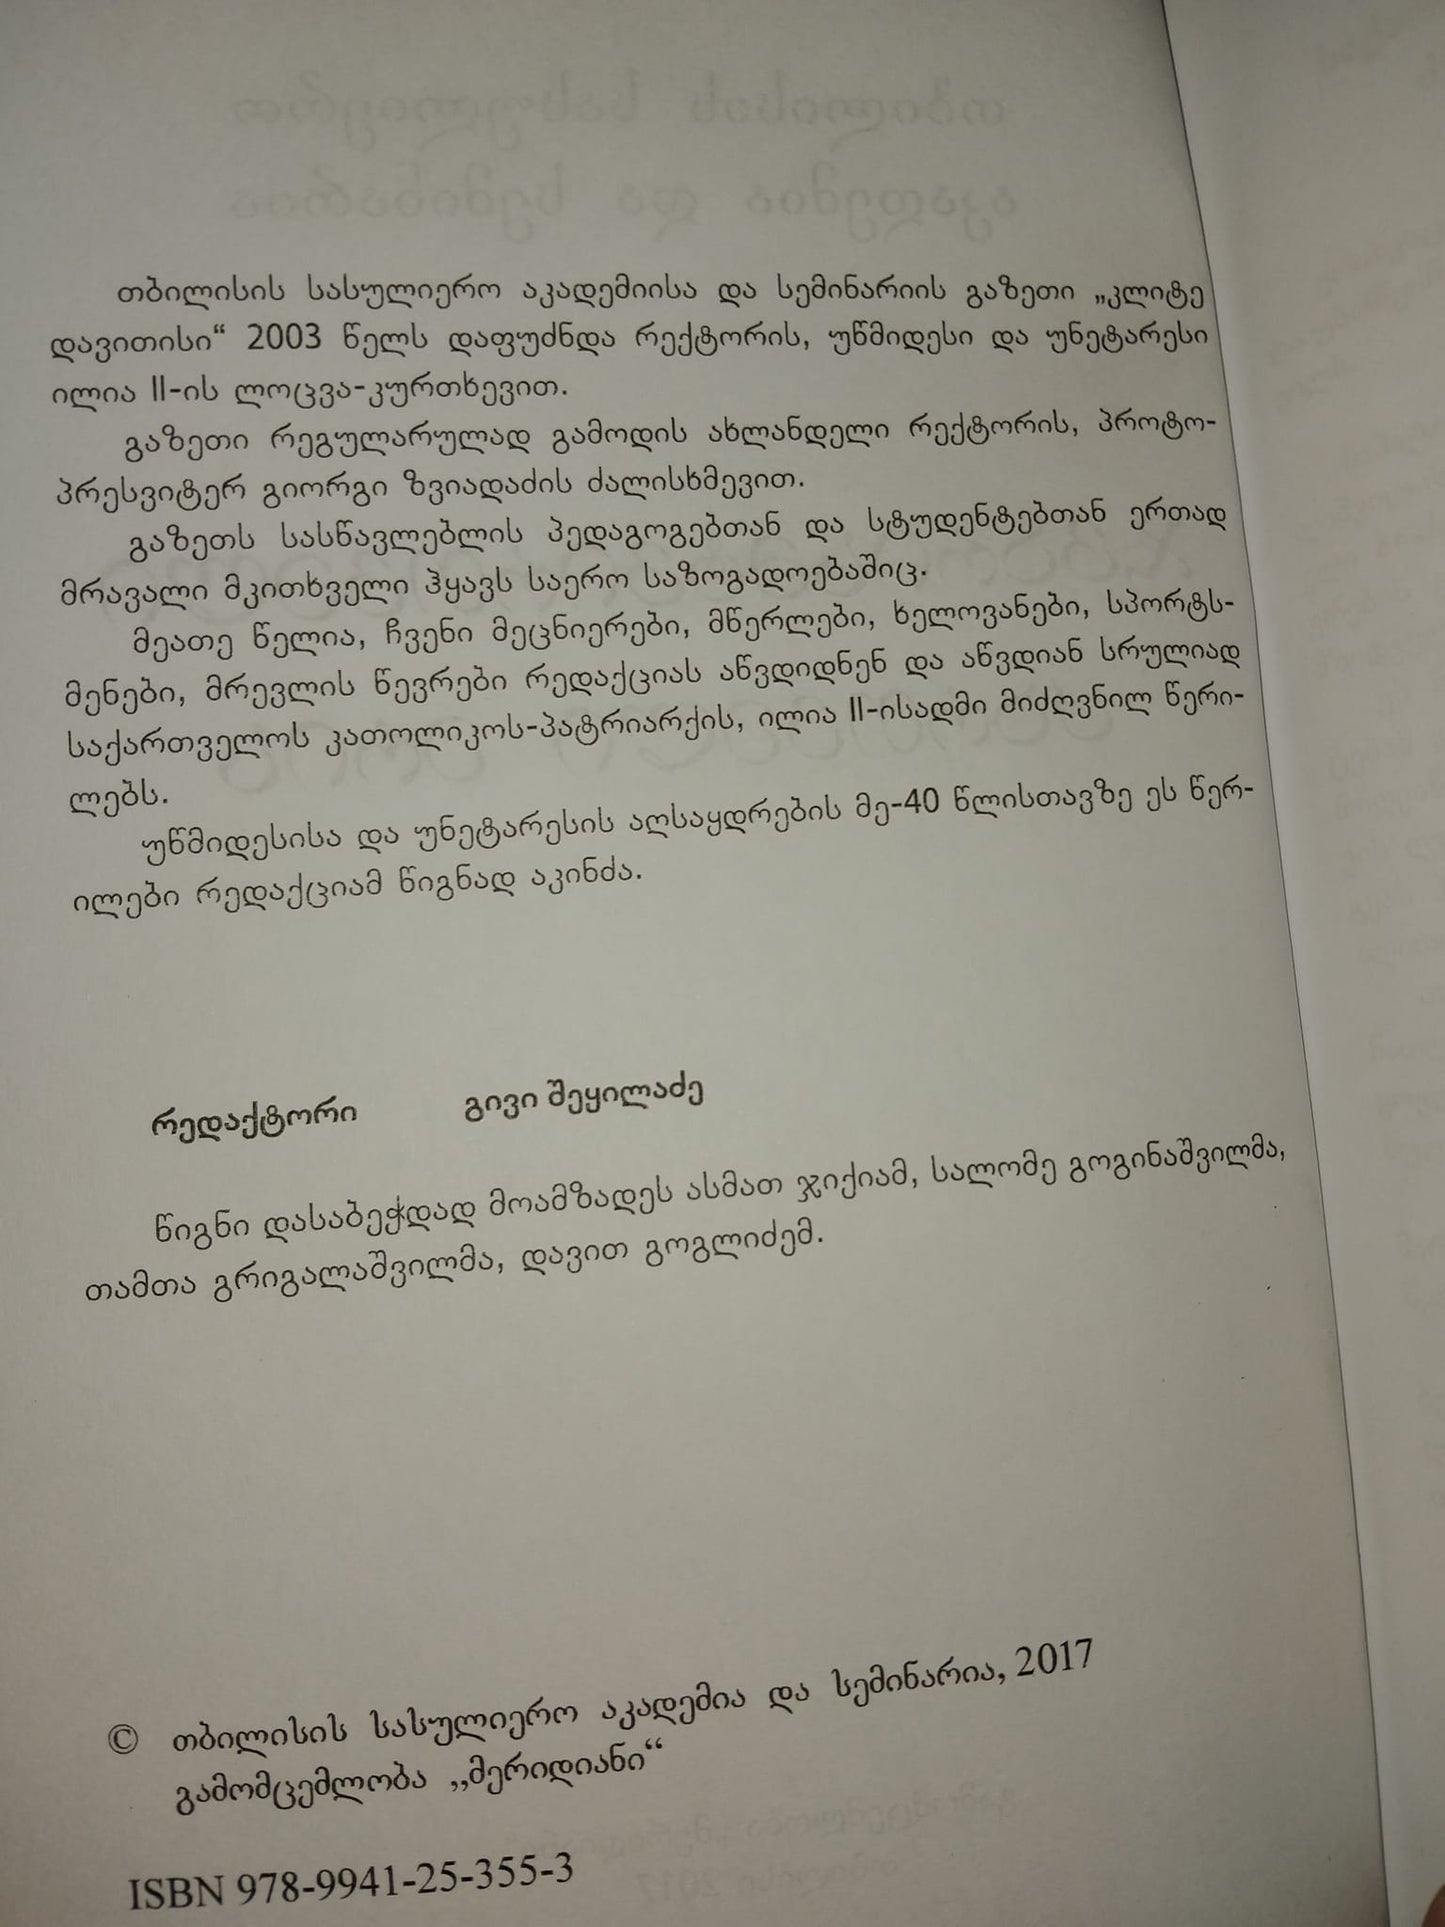 თბილისის სასულიერო აკადემიისა და სემინარიის გაზეთი „კლიტე
დავითისი“ 2003 წელს დაფუძნდა რექტორის, უწმიდესი და უნეტარესი
ილია II-ის ლოცვა-კურთხევით.
გაზეთი რეგულარულად გამოდის ახლანდელი რექტორის, პროტო-
პრესვიტერ გიორგი ზვიადაძის ძალისხმევით.
გაზეთს სასწავლებლის პედაგოგებთან და სტუდენტებთან ერთად
მრავალი მკითხველი ჰყავს საერო საზოგადოებაშიც.
მეათე წელია, ჩვენი მეცნიერები, მწერლები, ხელოვანები, სპორტს-
მენები, მრევლის წევრები რედაქციას აწვდიდნენ და აწვდიან სრულიად
საქართველოს კათოლიკოს-პატრიარქის, ილია II-ისადმი მიძღვნილ წერი-
ლებს.
უწმიდესისა და უნეტარესის აღსაყდრების მე-40 წლისთავზე ეს წერ-
ილები რედაქციამ წიგნად აკინძა.
რედაქტორი გივი შეყილაძე
წიგნი დასაბეჭდად მოამზადეს ასმათ ჯიქიამ, სალომე გოგინაშვილმა,
თამთა გრიგალაშვილმა, დავით გოგლიძემ.
© თბილისის სასულიერო აკადემია და სემინარია, 2017
გამომცემლობა ,,მერიდიანი“
ISBN 978-9941-25-355-3